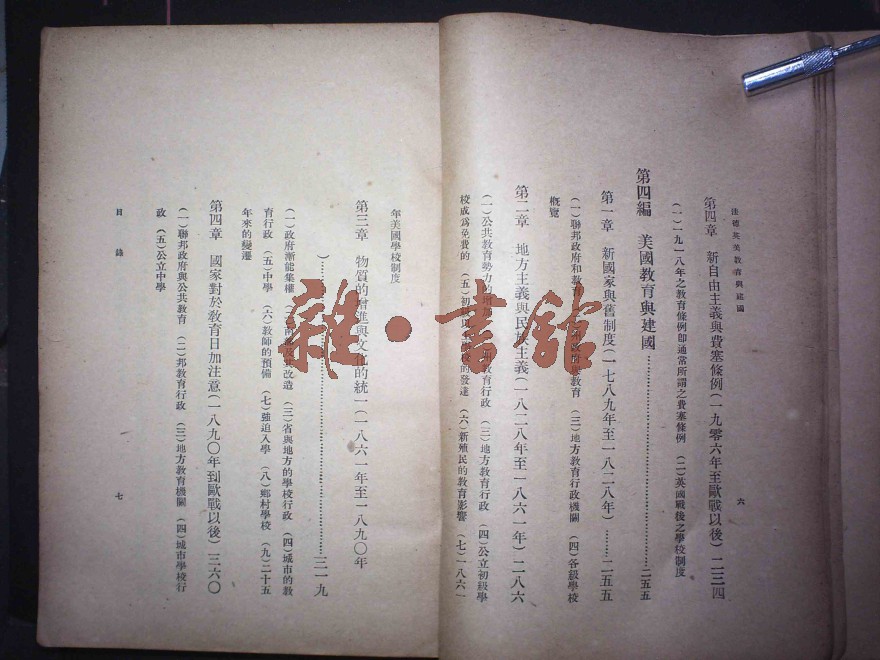 法德英美教育與建國
六
第四章 新自由主義與費塞條例(一九零六年至歐戰以後)二三四
(一)一九一八年之教育條例卽通常所謂之費塞條例 (二)英國戰後之學校制度
第四編 美國教育與建國……二五五
第一章 新國家與舊制度(一七八九年至一八二八年)……二五五
(一)聯邦政府和教育 政府與教育 (三)地方教育行政機關 (四)各級學校
概覽
第二章 地方主義與民族主義(一八二八年至一八六一年)二八六
(一)公共教育勢力的增加 教育行政 (三)地方教育行政 (四)公立初級學
校成爲免費的 (五)初級 學校的發達 (六)新殖民的教育影響 (七)一八六一
年美國學校制度
第三章 物質的增進與文化的統一(一八六一年至一八九〇年
)……三一九
(一)政府漸能集權 (二)南部及其改造 (三)省與地方的學校行政 (四)城市的教
育行政 (五)中學 (六)教師的預備 (七)強迫入學 (八)鄉村學校 (九)二十五
年來的變遷
第四章 國家對於教育日加注意(一八九〇年到歐戰以後)三六〇
(一)聯邦政府與公共教育 (二)邦教育行政 (三)地方教育機關 (四)城市學校行
政 (五)公立中學
目錄
七
雜·書館